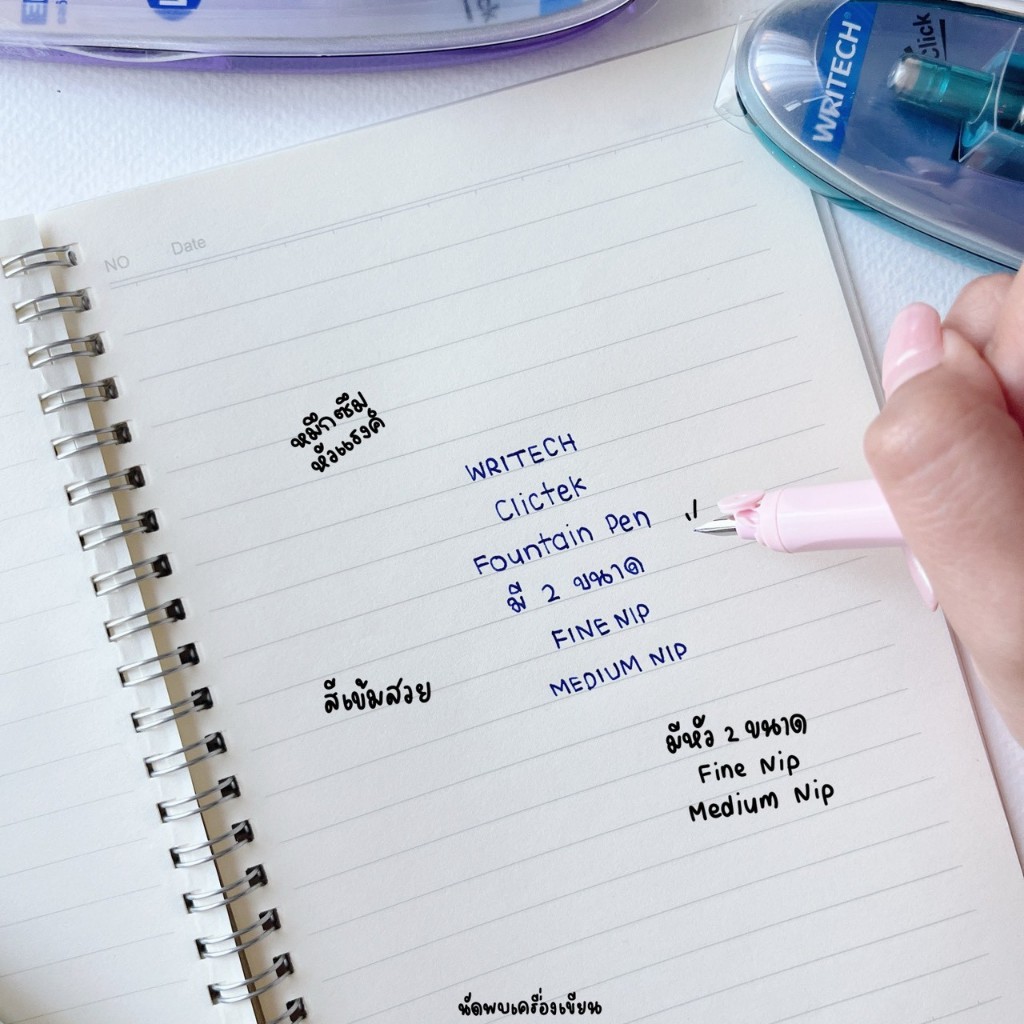 WRITECH
Click
NO Date
หมึกซึม
หัวแรงค์
WRITECH
Clictek
Fountain Pen
มี 2 ขนาด
FINE NIP
MEDIUM NIP
สีเข้มสวย
มีหัว 2 ขนาด
Fine Nip
Medium Nip
นัดพบเครื่องเขียน